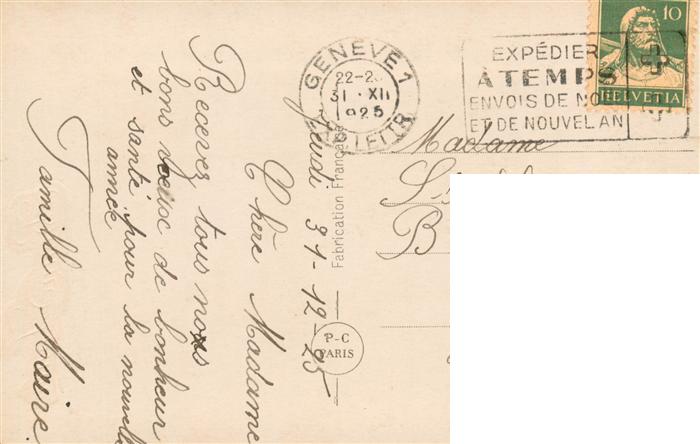 Jeudi 31-12-25
Chère Madame
Recevez tous nos
bons voeux de bonheur
et santé pour la nouvelle
année
Famille Maire.
Fabrication Française
P-C
PARIS
GENÈVE 1
22-2
31. XII
1925
EXPÉDIER
À TEMPS
ENVOIS DE NO
ET DE NOUVEL AN
10
HELVETIA
Madame
B